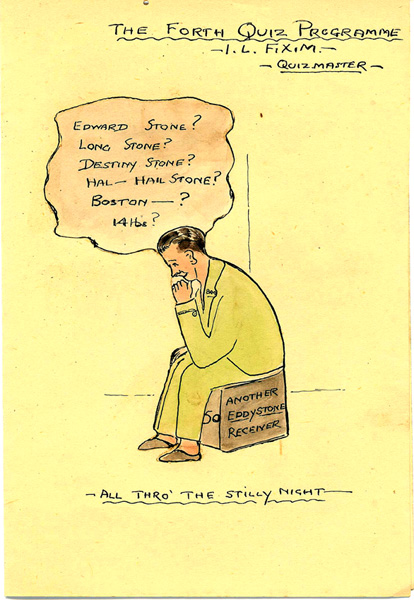 THE FORTH QUIZ PROGRAMME
— I.L. FIXIM. —
— QUIZMASTER —
EDWARD STONE?
LONG STONE?
DESTINY STONE?
HAL— HAILSTONE?
BOSTON — ?
14 lbs?
ANOTHER
EDDYSTONE
RECEIVER
— ALL THRO' THE STILLY NIGHT —